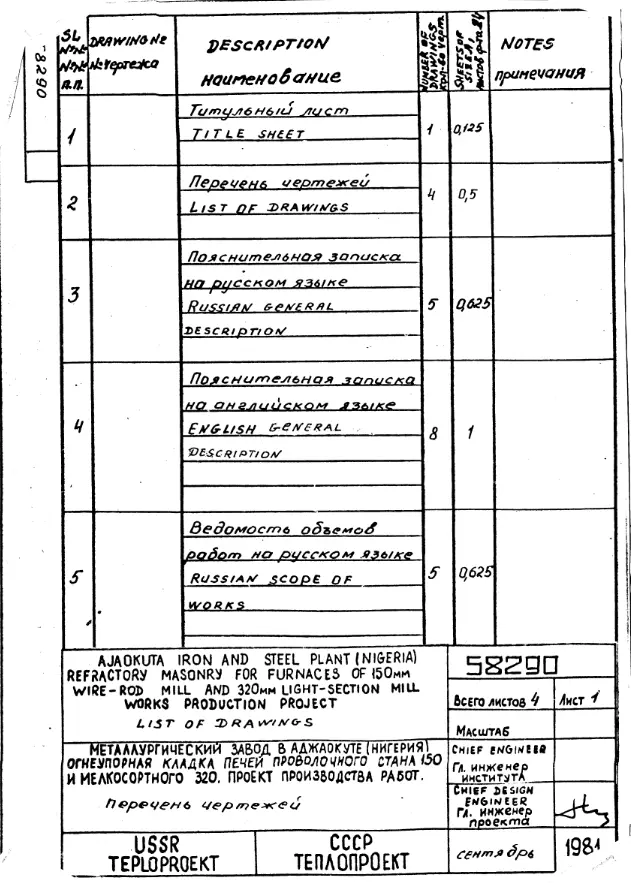 -8290
SL DRAWING № DESCRIPTION NUMBER OF DRAWINGS SHEETS OF SIZE A, NOTES
№№ № чертежа наименование кол-во черт. листов ф-та 24 примечания
п.п.
Титульный лист
1 TITLE SHEET 1 0,125
Перечень чертежей
2 LIST OF DRAWINGS 4 0,5
Пояснительная записка
на русском языке
3 RUSSIAN GENERAL 5 0,625
DESCRIPTION
Пояснительная записка
на английском языке
4 ENGLISH GENERAL 8 1
DESCRIPTION
Ведомость объемов
работ на русском языке
5 RUSSIAN SCOPE OF 5 0,625
WORKS
AJAOKUTA IRON AND STEEL PLANT (NIGERIA)
REFRACTORY MASONRY FOR FURNACES OF 150мм
WIRE-ROD MILL AND 320мм LIGHT-SECTION MILL
WORKS PRODUCTION PROJECT
LIST OF DRAWINGS
58290
Всего листов 4 Лист 1
Масштаб
МЕТАЛЛУРГИЧЕСКИЙ ЗАВОД В АДЖАОКУТЕ (НИГЕРИЯ)
ОГНЕУПОРНАЯ КЛАДКА ПЕЧЕЙ ПРОВОЛОЧНОГО СТАНА 150
И МЕЛКОСОРТНОГО 320. ПРОЕКТ ПРОИЗВОДСТВА РАБОТ.
Перечень чертежей
CHIEF ENGINEER
Гл. инженер
института
CHIEF DESIGN
ENGINEER
Гл. инженер
проекта
USSR СССР
TEPLOPROEKT ТЕПЛОПРОЕКТ
сентябрь 1981